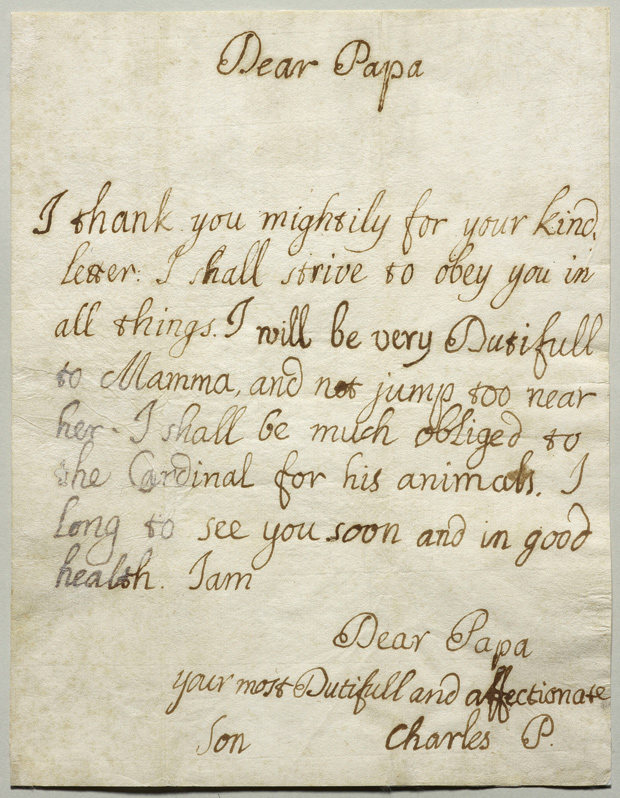 Dear Papa
I thank you mightily for your kind
letter. I shall strive to obey you in
all things. I will be very Dutifull
to Mamma, and not jump too near
her. I shall be much obliged to
the Cardinal for his animals. I
long to see you soon and in good
health. I am
Dear Papa
your most Dutifull and affectionate
Son Charles P.